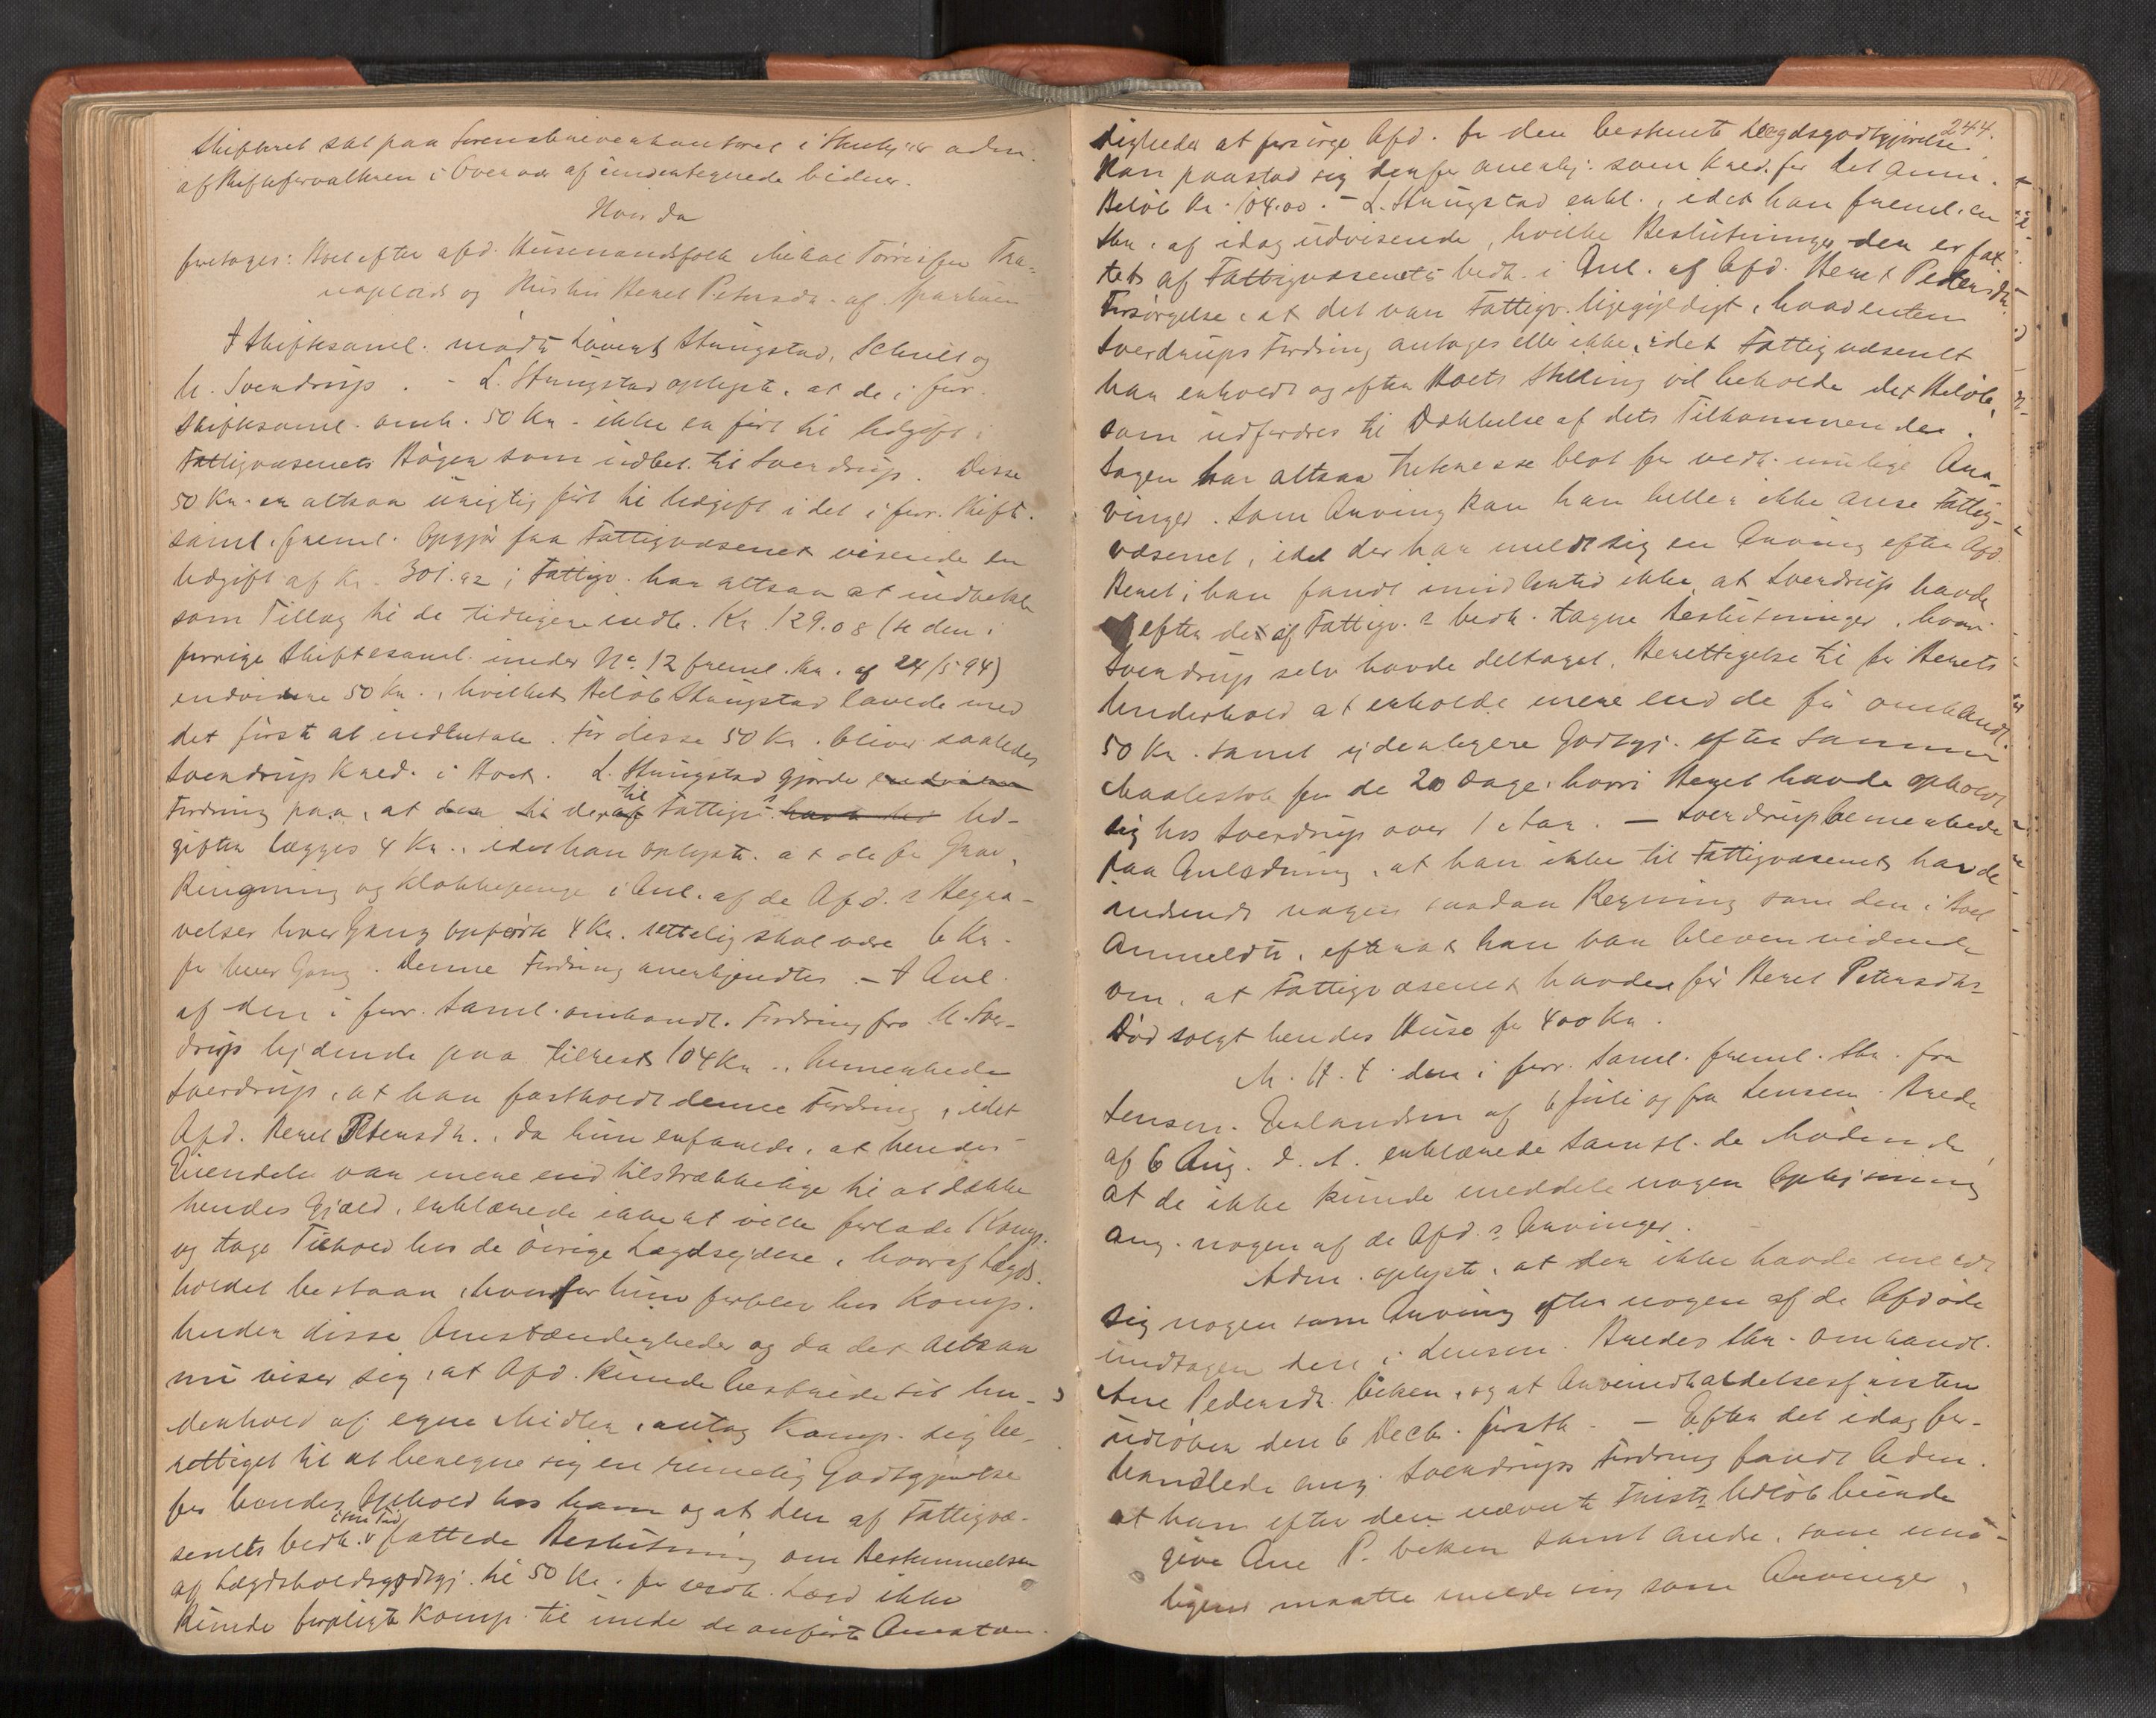 Skifteret sat paa Sorenskriverkontoret i Stenkjær adm.
af Skifteforvalteren i Overvær af undertegnede Vidner.
Hvorda
foretoges: Boet efter afd. Husmandsfolk Mikal Torrisen Tra-
naplads og Hustru Beret Petersdtr. af Sparbuen
I Skiftesaml. mødte Lavents Stungstad, Schult og
M. Sverdrup. - L. Stungstad oplyste, at de i forr.
Skiftesaml. omh. 50 Kr. ikke er ført til Udgift i
Fattigvæsenets Bøger som udbet. til Sverdrup. Disse
50 Kr. er altsaa urigtig ført til Udgift i det i forr. Skifte-
saml. freml. Opgjør fra Fattigvæsenet visende en
Udgift af Kr. 301.92; Fattigv. har altsaa at indbetale
som Tillæg til de tidligere indb. Kr. 129.08 (se den i
forrige Skiftesaml. under No. 12 freml. Skr. af 24/5 94)
endvidere 50 Kr., hvilket Beløb Stungstad lovede med
det første at indbetale. For disse 50 Kr. bliver saaledes
Sverdrup Kred. i Boet. L. Stungstad gjorde endvidere
Fordring paa, at der til de til Fattigv.s Ud-
gifter lægges 4 Kr., idet han oplyste, at de for Grav,
Ringning og Klokkepenge i Anl. af de Afd.s Begra-
velser hver Gang opførte 4 Kr. rettelig skal være 6 Kr.
for hver Gang. Denne Fordring anerkjendtes. - I Anl.
af den i forr. Saml. omhandl. Fordring fra M. Sver-
drup lydende paa tilrest 104 Kr., bemerkede
Sverdrup, at han fastholdt denne Fordring, idet
Afd. Beret Petersdtr., da hun erfarede, at hendes
Eiendele var mere end tilstrækkelige til at dække
hendes Gjæld, erklærede ikke at ville forlade Komp.
og tage Tilhold hos de øvrige Lægdsydere, hvoraf Lægds-
holdet bestaar, hvorfor hun forblev hos Komp.
Under disse Omstændigheder og da det altsaa
nu viser sig, at Afd. kunde bestride sit Un-
derhold af egne Midler, antog Komp. sig be-
rettiget til at beregne sig en rimelig Godtgjørelse
for hendes Ophold hos ham og at den af Fattigvæ-
senets Vedk. i sin Tid fattede Beslutning om Bestemmelsen
af Lægdsholdsgodtgj. til 50 Kr. for vedk. Lægd ikke
kunde forpligte Komp. til under de anførte Omstæn-
244.
digheder at forsørge Afd. for den bestemte Lægdsgodtgjørelse.
Han paastod sig derfor anerkj. som Kred. for det anm.
Beløb Kr. 104.00. - L. Stungstad erkl., idet han freml. en
Skr. af idag udvisende, hvilke Beslutninger der er fat-
tet af Fattigvæsenets Vedk. i Anl. af Afd. Beret Petersdtr.
Forsørgelse, at det var Fattigv. ligegyldigt, hvad enten
Sverdrups Fordring antages eller ikke, idet Fattigvæsenet
har erholdt og efter Boets Stilling vil beholde det Beløb,
som udfordres til Dækkelse af dets Tilkommende.
Sagen har altsaa Interesse blot for vedk. mulige Ar-
vinger. Som Arving kan han heller ikke anse Fattig-
væsenet, idet der har meldt sig en Arving efter Afd.
Beret; han fandt imidlertid ikke, at Sverdrup havde
efter de af Fattigv.s Vedk. tagne Beslutninger, hvori
Sverdrup selv havde deltaget, Berettigelse til for Berets
Underhold at erholde mere end de før omhandl.
50 Kr. samt yderligere Godtgj. efter samme
Maalestok for de 20 Dage, hvori Beret havde opholdt
sig hos Sverdrup over 1 Aar. - Sverdrup bemerkede
paa Anledning, at han ikke til Fattigvæsenet havde
indsendt nogen saadan Regning som den i Boet
anmeldte, efterat han var bleven vidende
om, at Fattigvæsenet havde før Beret Petersdtrs
Død solgt hendes Huse for 400 Kr.
M. H. t. den i forr. Saml. freml. Skr. fra
Lensm. Erlandsen af 6 Juli og fra Lensm. Brede
af 6 Aug. d. A. erklærede samtl. de Mødende,
at de ikke kunde meddele nogen Oplysning
ang. nogen af de Afd.s Arvinger.
Adm. oplyste, at der ikke havde meldt
sig nogen som Arving efter nogen af de Afdøde
undtagen den i Lensm. Bredes Skr. omhandl.
Ane Pedersdtr. Veken, og at Anmeldelsesfristen
udløber den 6 Decbr. førstk. - Efter det idag for-
handlede ang. Sverdrups Fordring fandt Adm.
at han efter den nævnte Frists Udløb burde
give Ane P. Veken samt andre, som mu-
ligens maatte melde sig som Arvinger,